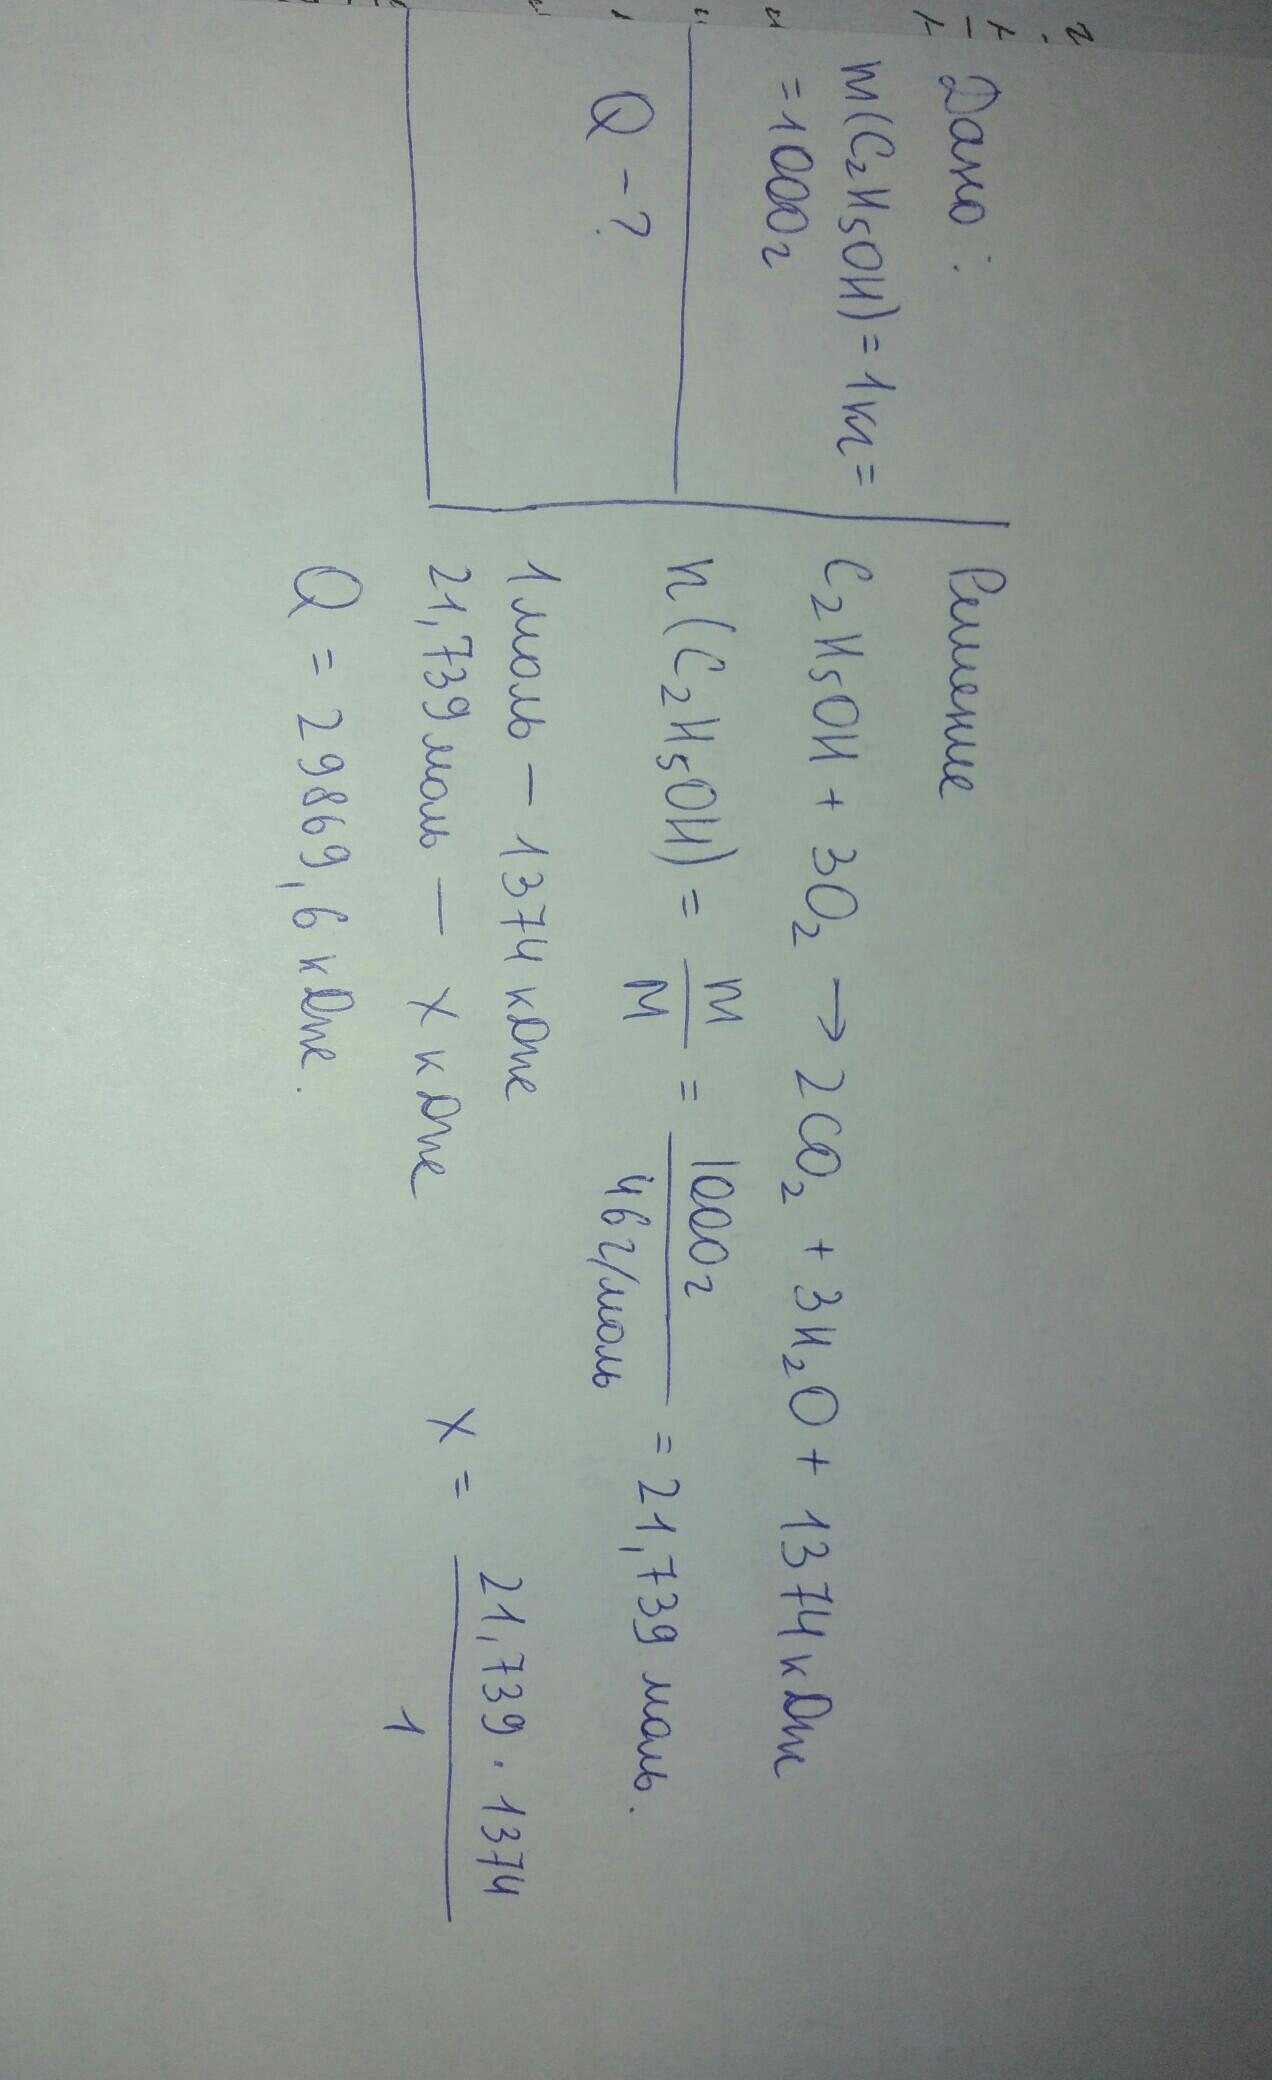 Дано:
m(C₂H₅OH) = 1кг =
= 1000г
Q - ?
Решение
C₂H₅OH + 3O₂ → 2CO₂ + 3H₂O + 1374 кДж
n(C₂H₅OH) = m/M = 1000г/46г/моль = 21,739 моль.
1 моль - 1374 кДж
21,739 моль - x кДж x = 21,739 · 1374/1
Q = 29869,6 кДж.